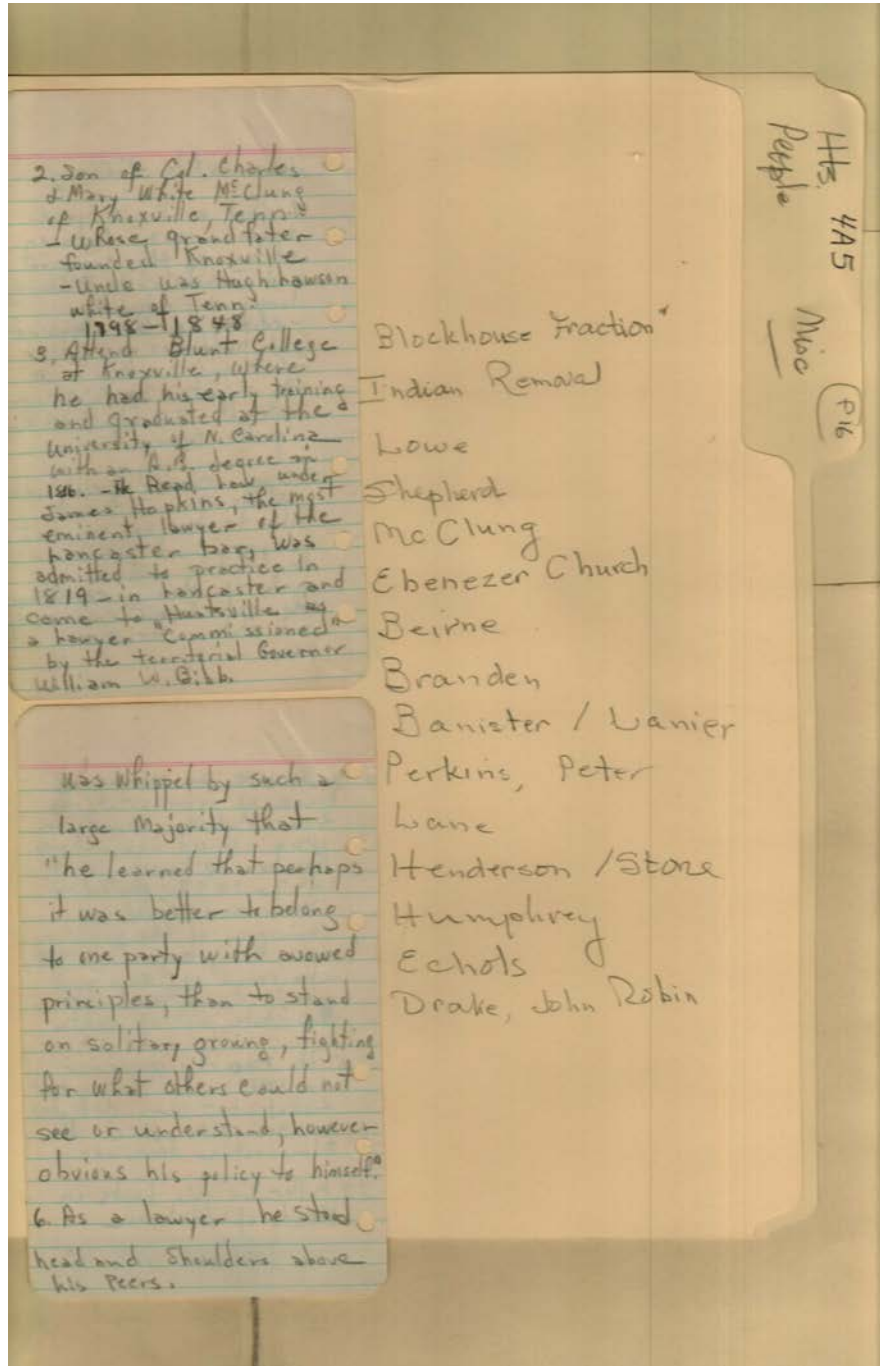 2. Son of Col. Charles
& Mary White McClung
of Knoxville, Tenn.
- Whose grandfater
founded Knoxville
- Uncle was Hugh Lawson
White of Tenn.
1798-1848
3. Attend Blunt College
at Knoxville, where
he had his early training
and graduated at the
University of N. Carolina
with an A.B. degree in
1816. - He Read law under
James Hopkins, the most
eminent lawyer of the
Lancaster bar, was
admitted to practice in
1819 - in Lancaster and
come to Huntsville as
a lawyer "Commissioned"
by the territorial Governor
William W. Bibb.
was whippel by such a
large Majority that
"he learned that perhaps
it was better to belong
to one party with avowed
principles, than to stand
on solitary groung, fighting
for what others could not
see or understand, however
obvious his policy to himself."
6. As a lawyer he stood
head and shoulders above
his Peers.
Blockhouse Fraction"
Indian Removal
Lowe
Shepherd
McClung
Ebenezer Church
Beirne
Branden
Banister / Lanier
Perkins, Peter
Lane
Henderson / Stone
Humphrey
Echols
Drake, John Robin
Hts. 4A5 Misc P16
People